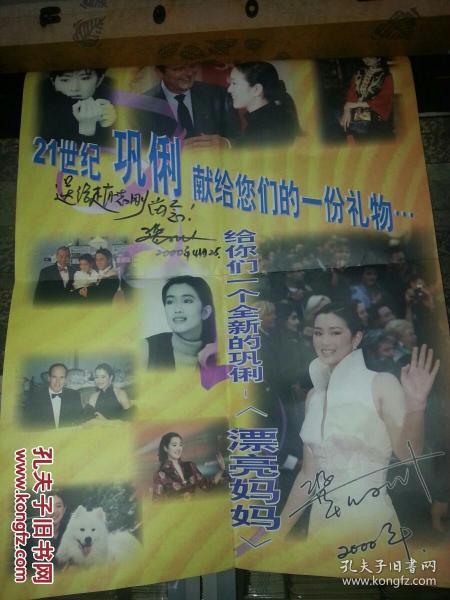 21世纪 巩俐 献给您们的一份礼物…
2000年4月26
给你们一个全新的巩俐-〈漂亮妈妈〉
2000年.
孔夫子旧书网
孔夫子旧书网
www.kongfz.com